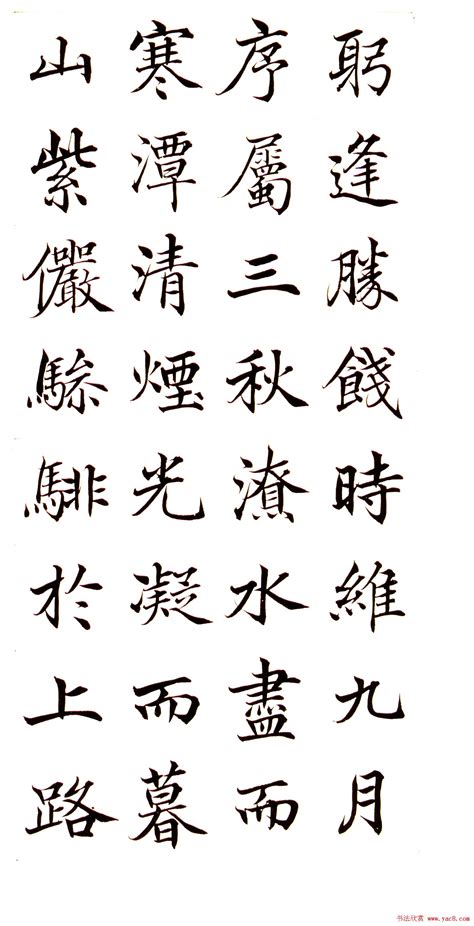 躬逢勝餞時維九月
序屬三秋潦水盡而
寒潭清煙光凝而暮
山紫儼驂騑於上路
书法欣赏 www.yac8.com